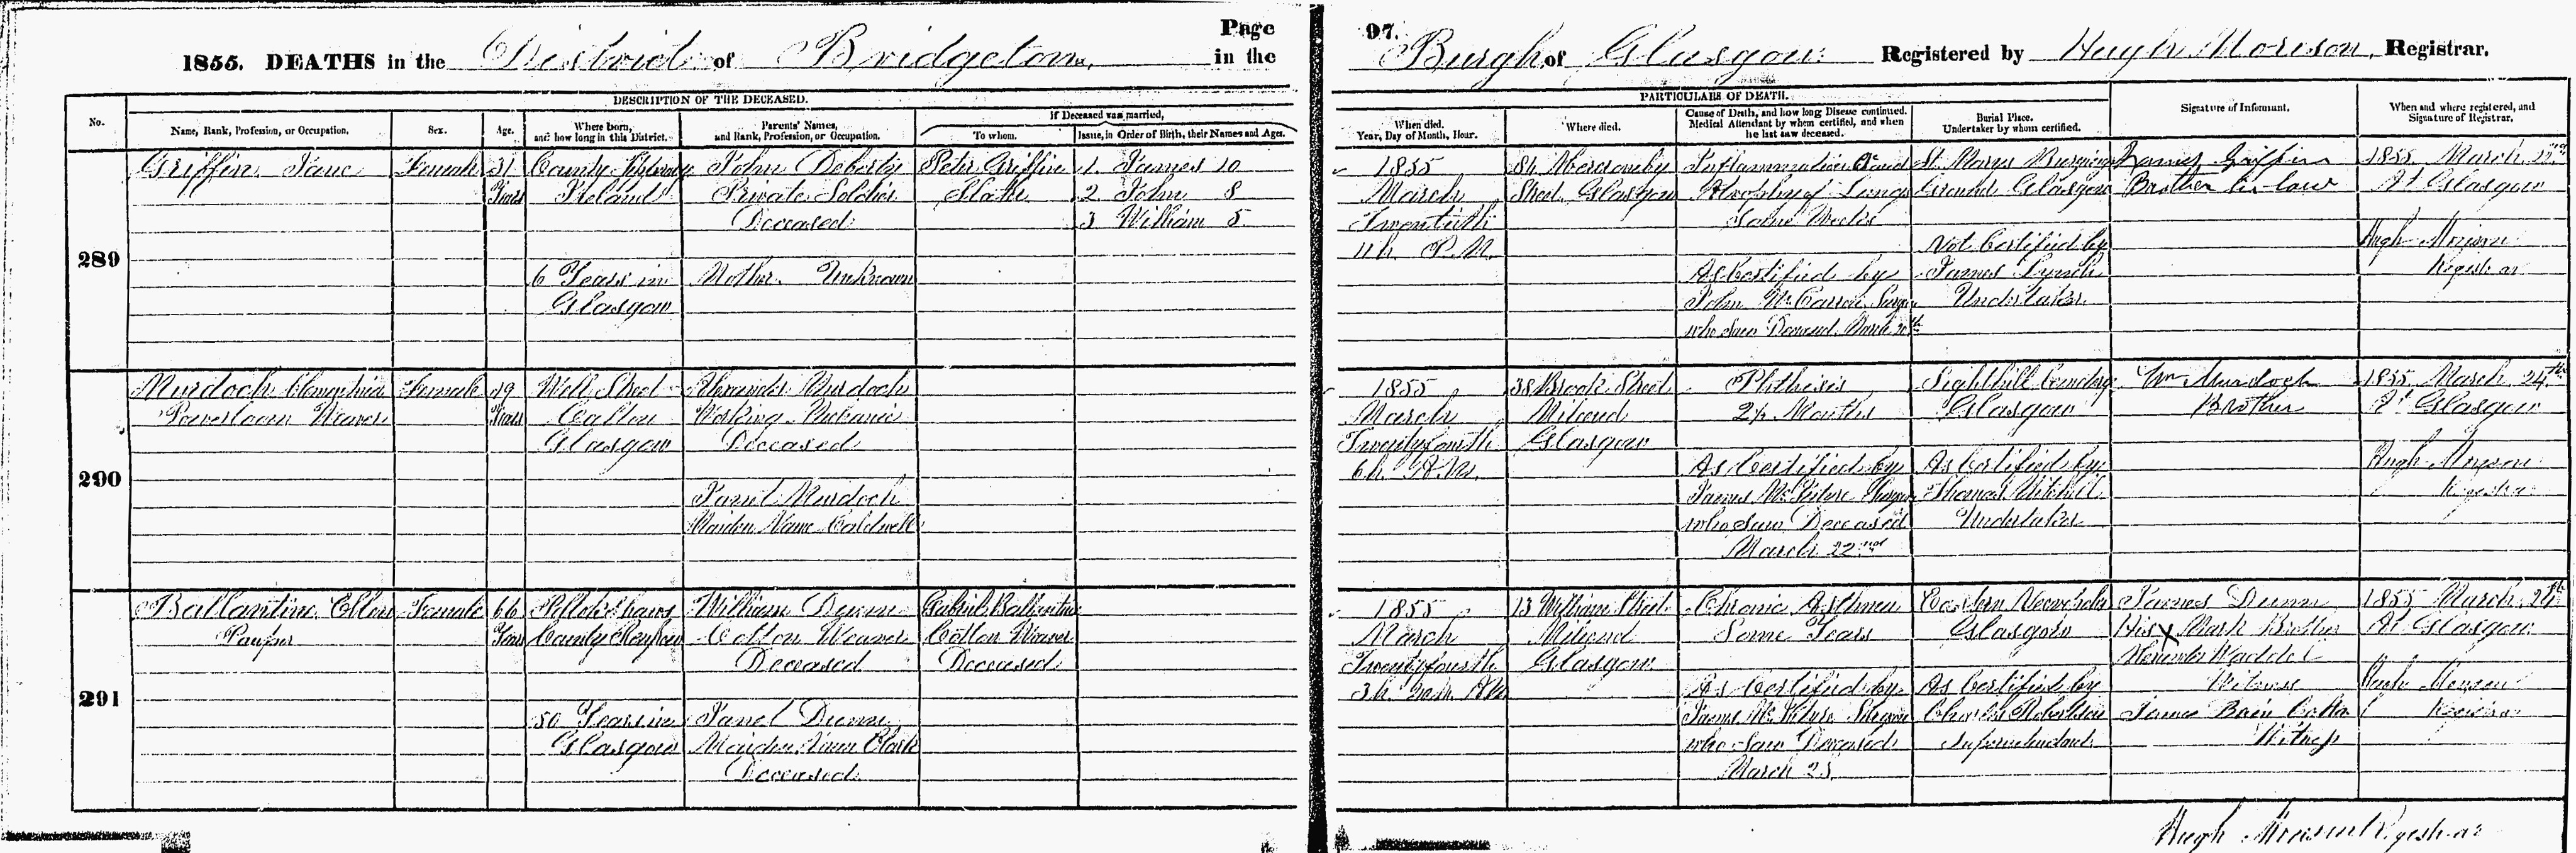 Page 97.
1855. DEATHS in the District of Bridgeton, in the Burgh of Glasgow Registered by Hugh Morison, Registrar.
DESCRIPTION OF THE DECEASED.
PARTICULARS OF DEATH.
No.
Name, Rank, Profession, or Occupation.
Sex.
Age.
Where born,
and how long in this District.
Parents' Names,
and Rank, Profession, or Occupation.
If Deceased was married,
To whom.
Issue, in Order of Birth, their Names and Ages.
When died.
Year, Day of Month, Hour.
Where died.
Cause of Death, and how long Disease continued.
Medical Attendant by whom certified, and when
he last saw deceased.
Burial Place.
Undertaker by whom certified.
Signature of Informant.
When and where registered, and
Signature of Registrar.
289
Griffin Jane
Female
31
Years
County
Ireland
6 Years in
Glasgow
John Doherty
Private Soldier
Deceased
Mother Unknown
Peter Griffin
Slater
1. James 10
2 John 8
3 William 5
1855
March
Twentieth
11 h P.M.
84 Abercromby
Street Glasgow
Inflammation and
Atrophy of Lungs
Some Weeks
As Certified by
John McCarron Surgeon
who Saw Deceased March 20th
St. Marys Burying
Ground Glasgow
Not Certified by
James Lynch
Undertaker
James Griffin
Brother in law
1855 March 22nd
At Glasgow
Hugh Morison
Registrar
290
Murdoch Clementina
Powerloom Weaver
Female
29
Years
Well Street
Calton
Glasgow
Alexander Murdoch
Working Mechanic
Deceased
Janet Murdoch
Maiden Name Caldwell
1855
March
Twentyfourth
6 h A.M.
38 Brook Street
Mileend
Glasgow
Phthisis
2½ Months
As Certified by
James McIntyre Surgeon
who Saw Deceased
March 22nd
Sighthill Cemetery
Glasgow
As Certified by
Thomas Mitchell
Undertaker
Wm Murdoch
Brother
1855 March 24th
At Glasgow
Hugh Morison
Registrar
291
Ballantine Ellen
Pauper
Female
66
Years
Pollokshaws
County Renfrew
50 Years in
Glasgow
William Dunn
Cotton Weaver
Deceased
Janet Dunn
Maiden Name Clark
Deceased
Gabriel Ballantine
Cotton Weaver
Deceased
1855
March
Twentyfourth
3 h AM
13 William Street
Mileend
Glasgow
Chronic Asthma
Some Years
As Certified by
James McIntyre Surgeon
who Saw Deceased
March 23
Eastern Necropolis
Glasgow
As Certified by
Charles Robertson
Superintendent
James Dunn
His X Mark Brother
Alexander Waddel
Witness
James Bain
Witness
1855 March 24th
At Glasgow
Hugh Morison
Registrar
Hugh Morison Registrar